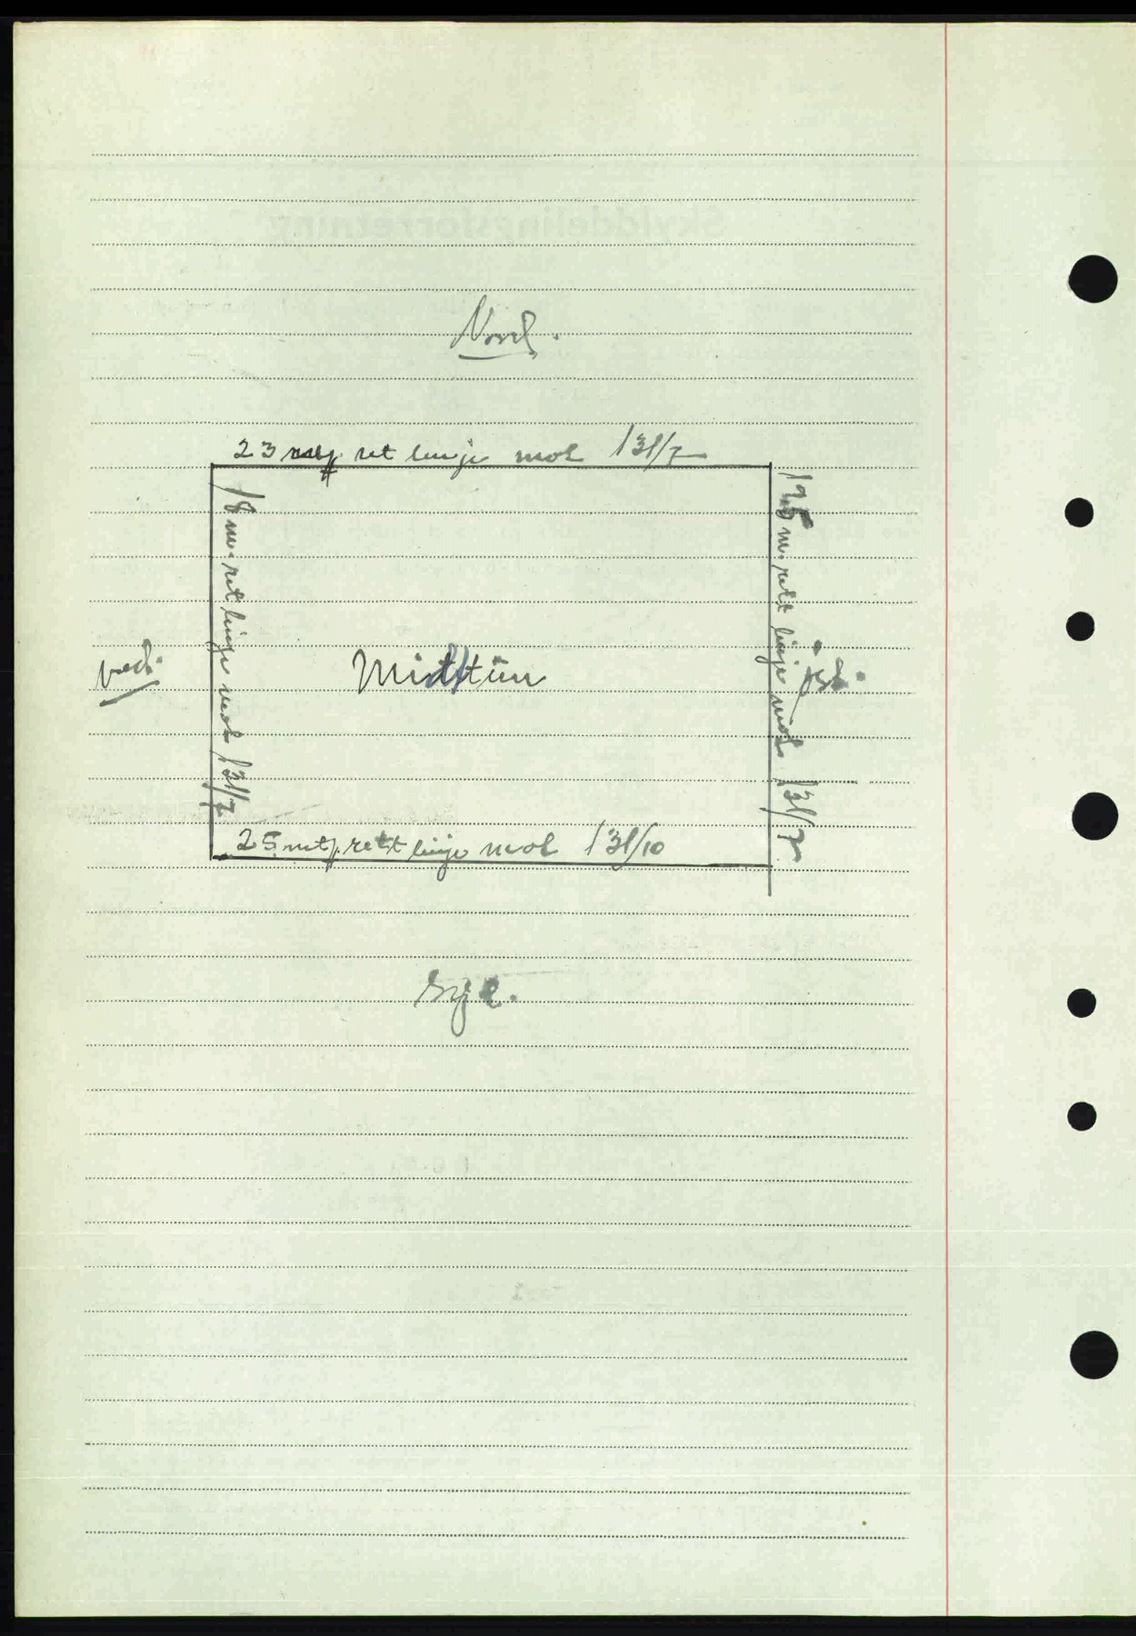 Nord.
23 mtr. ret linje mot 131/7
18 m. ret linje mot 131/7
25 m. rett linje mot 131/7
vest.
Midttun
øst.
25 mtr. rett linje mot 131/10
Syd.